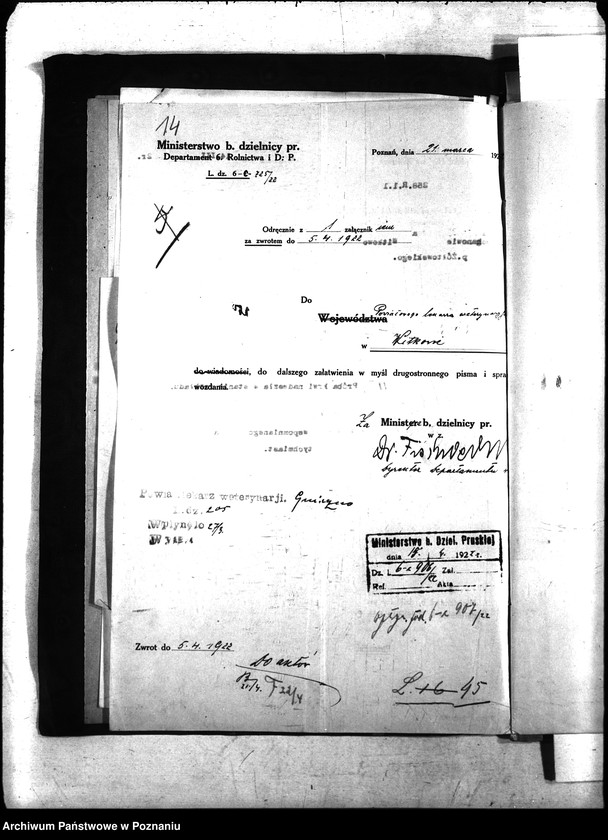 14
Ministerstwo b. dzielnicy pr.
Departament 6. Rolnictwa i D. P.
L. dz. 6-C- 725/22
Poznań, dnia 21. marca 192
Odręcznie z 1 załącznik iem
za zwrotem do 5. 4. 1922
Do
Województwa Powiatowego lekarza
w Witkowie
do wiadomości, do dalszego załatwienia w myśl drugostronnego pisma i spra
wozdania.
Za Ministerb. dzielnicy pr.
w z.
Dr.
dyrektor departamentu
Powia lekarz weterynarji. Gniezno
205
Wpłynęło 27/3.
Ministerstwo b. Dziel. Pruskiej
dnia 18. 4. 1922 r.
Dz. L. 6-c 907/22 Zal.
Ref. Akta
907/22
Zwrot do 5. 4. 1922
Do aktów
21/4. F 22/4
L. 16 45
Archiwum Państwowe w Poznaniu